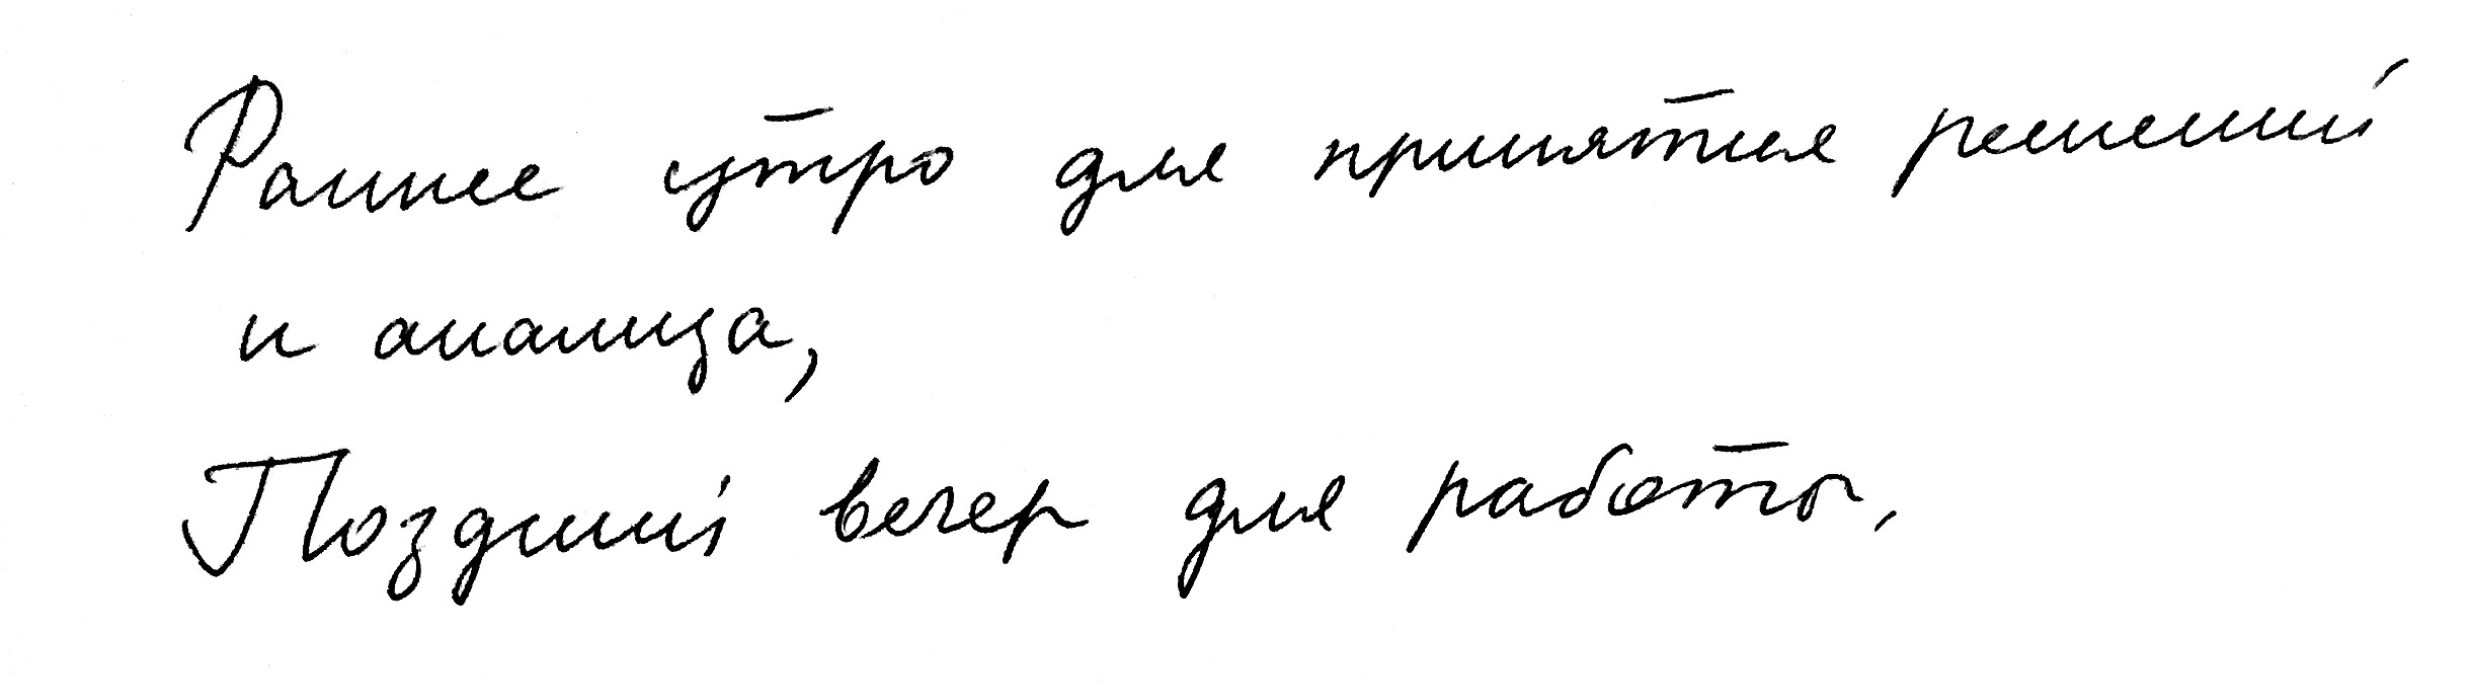 Раннее утро для принятия решений
и анализа,
Поздний вечер для работы.